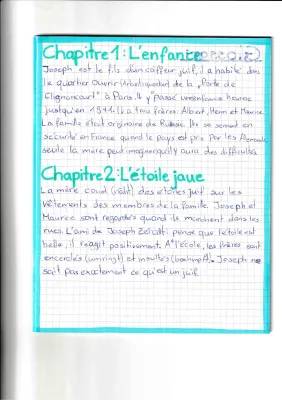 Chapitre 1: L'enfance
Joseph est le fils d'un coiffeur juif, il a habité dans
le quartier Ouvrier (Arbeiterquartier) de la "Porte de
Clignancourt" à Paris. Il y passé une enfance heureuse
jusqu'en 1941. Il a trois frères: Albert, Henri et Maurice.
La famille était originaire de Russie. Ils se sentent en
sécurité en France quand le pays est pris par les Allemands
seule la mère peut imaginer qu'il y aura des difficultés.
Chapitre 2: L'étoile jaue
La mère coud (näht) des étoiles juif sur les
vêtements des membres de la famille. Joseph et
Maurice sont regardés quand ils marchent dans les
rues. L'ami de Joseph pense que l'étoile est
belle, il réagit positivement. A l'école, les frères sont
encerclés (umringt) et insultés (beschimpft). Joseph ne
sait pas exactement ce qu'est un juif.